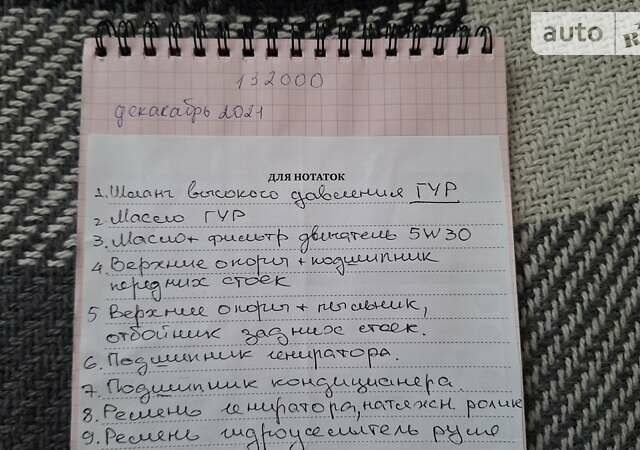 auto
132000
декакабрь 2021
ДЛЯ НОТАТОК
1. Шланг высокого давления ГУР
2. Масло ГУР
3. Масло + фильтр двигатель 5W30
4. Верхние опоры + подшипник
передних стоек
5 Верхние опоры + пыльник,
отбойник задних стоек.
6. Подшипник гениратора.
7. Подшипник кондицианера.
8. Ремень гениратора, натяжн. ролик
9. Ремень гидроусилитель руля